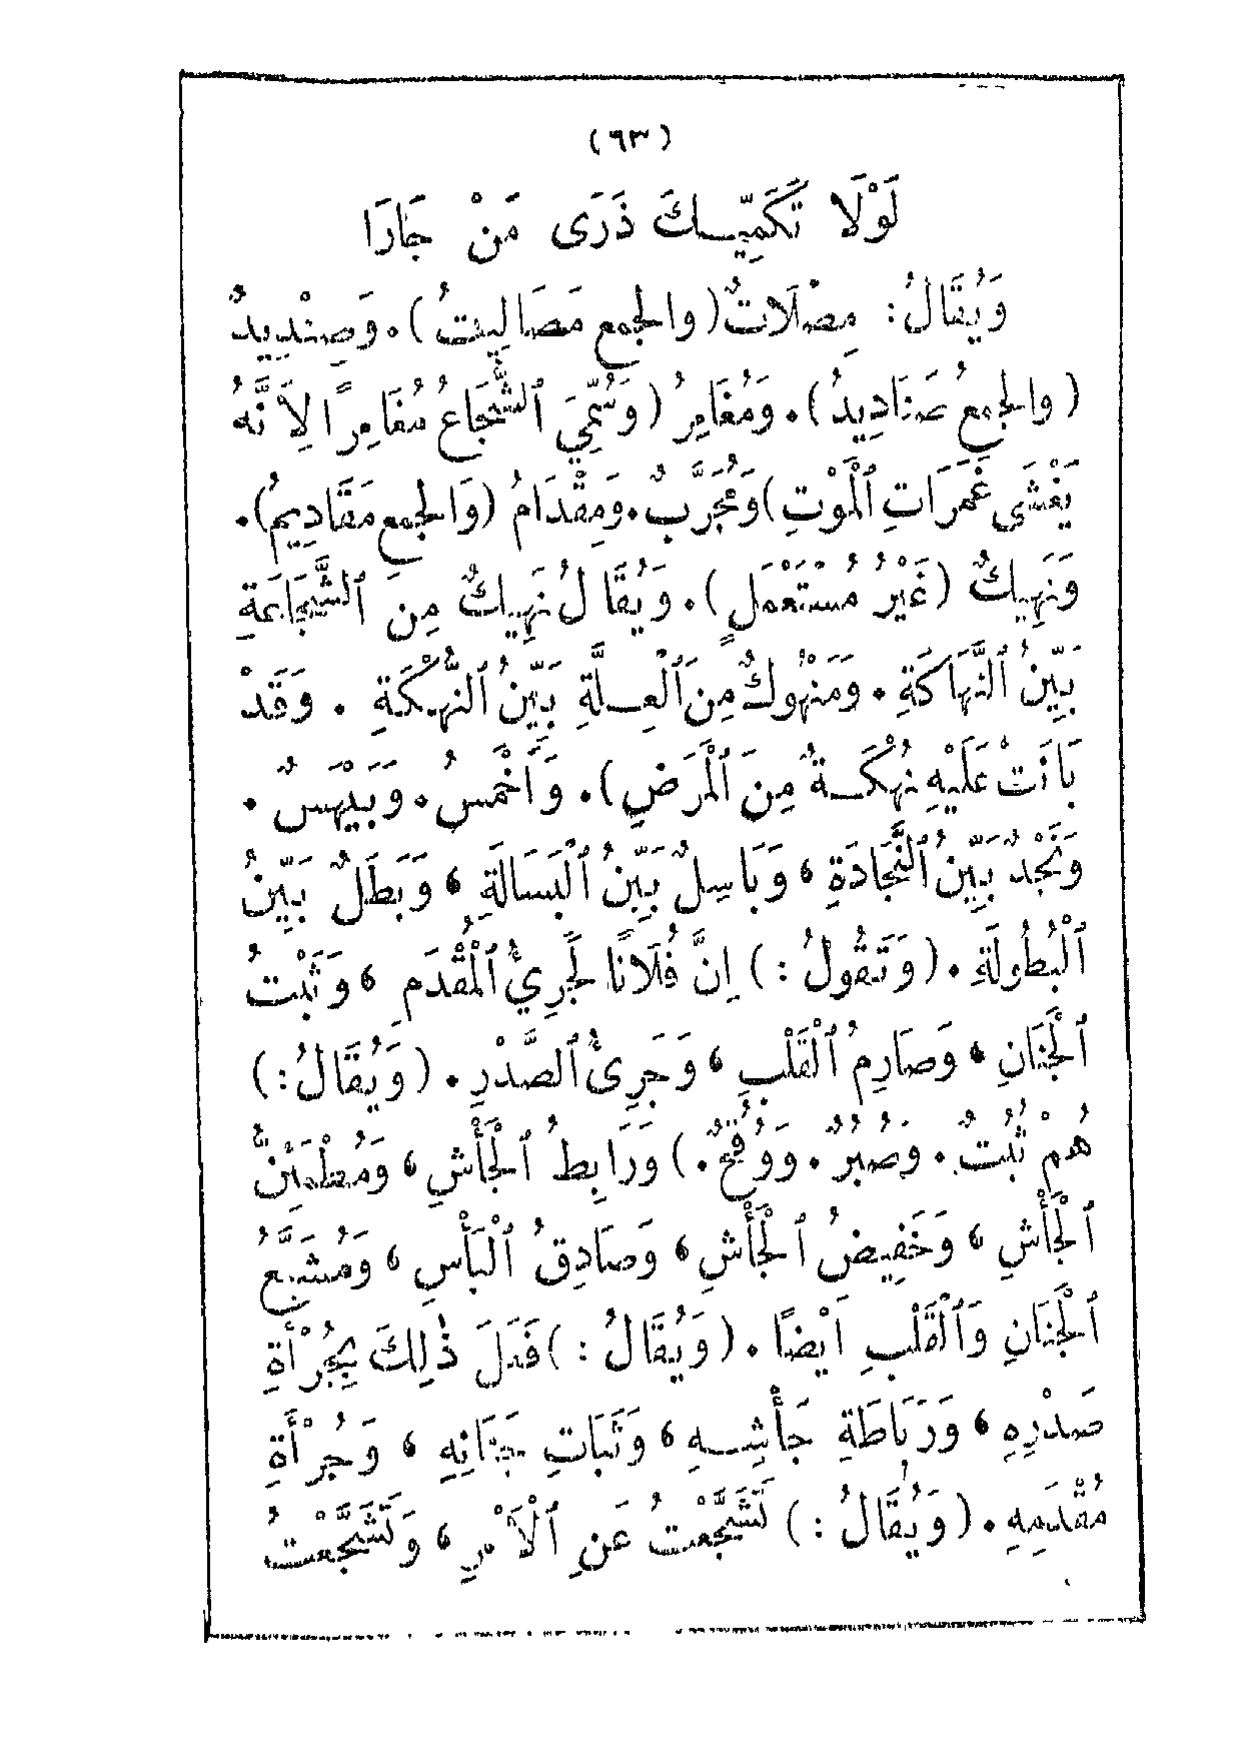 (٦٣)
لَوْلَا تَكَمِّيكَ ذَرَى مَنْ جَارَا
وَيُقَالُ: مِصْلَاتٌ (والجمع مَصَالِيتُ). وَصِنْدِيدٌ
(والجمعُ صَنَادِيدُ). وَمُغَامِرُ (وَسُمِّيَ ٱلشُّجَاعُ مُغَامِرًا لِأَنَّهُ
يَغْشَى غَمَرَاتِ ٱلْمَوْتِ) وَمُجَرَّبٌ. وَمِقْدَامُ (وَالجمع مَقَادِيمُ).
وَنَهِيكٌ (غَيْرُ مُسْتَعْمَلٍ). وَيُقَالُ نَهِيكٌ مِنَ ٱلشَّجَاعَةِ
بَيِّنُ ٱلنَّهَاكَةِ. وَمَنْهُوكٌ مِنَ ٱلْعِلَّةِ بَيِّنُ ٱلنُّهْكَةِ. وَقَدْ
بَانَتْ عَلَيْهِ نُهْكَةٌ مِنَ ٱلْمَرَضِ). وَأَحْمَسُ. وَبَيْهَسٌ.
وَنَجْدٌ بَيِّنُ ٱلنَّجَادَةِ، وَبَاسِلٌ بَيِّنُ ٱلْبَسَالَةِ، وَبَطَلٌ بَيِّنُ
ٱلْبُطُولَةِ. (وَتَقُولُ:) إِنَّ فُلَانًا لَجَرِيُّ ٱلْمُقْدَمِ، وَثَبْتُ
ٱلْجَنَانِ، وَصَارِمُ ٱلْقَلْبِ، وَجَرِيُّ ٱلصَّدْرِ. (وَيُقَالُ:)
هُمْ ثُبُتٌ. وَصُبُرٌ. وَوُقُحٌ.) وَرَابِطُ ٱلْجَأْشِ، وَمُطْمَئِنُّ
ٱلْجَأْشِ، وَخَفِيضُ ٱلْجَأْشِ، وَصَادِقُ ٱلْبَأْسِ، وَمُشَيَّعُ
ٱلْجَنَانِ وَٱلْقَلْبِ أَيْضًا. (وَيُقَالُ:) فَعَلَ ذٰلِكَ بِجُرْأَةِ
صَدْرِهِ، وَرَبَاطَةِ جَأْشِهِ، وَثَبَاتِ جَنَانِهِ، وَجُرْأَةِ
مُقْدَمِهِ. (وَيُقَالُ:) تَشَجَّعْتُ عَنِ ٱلْأَمْرِ، وَتَشَجَّعْتُ